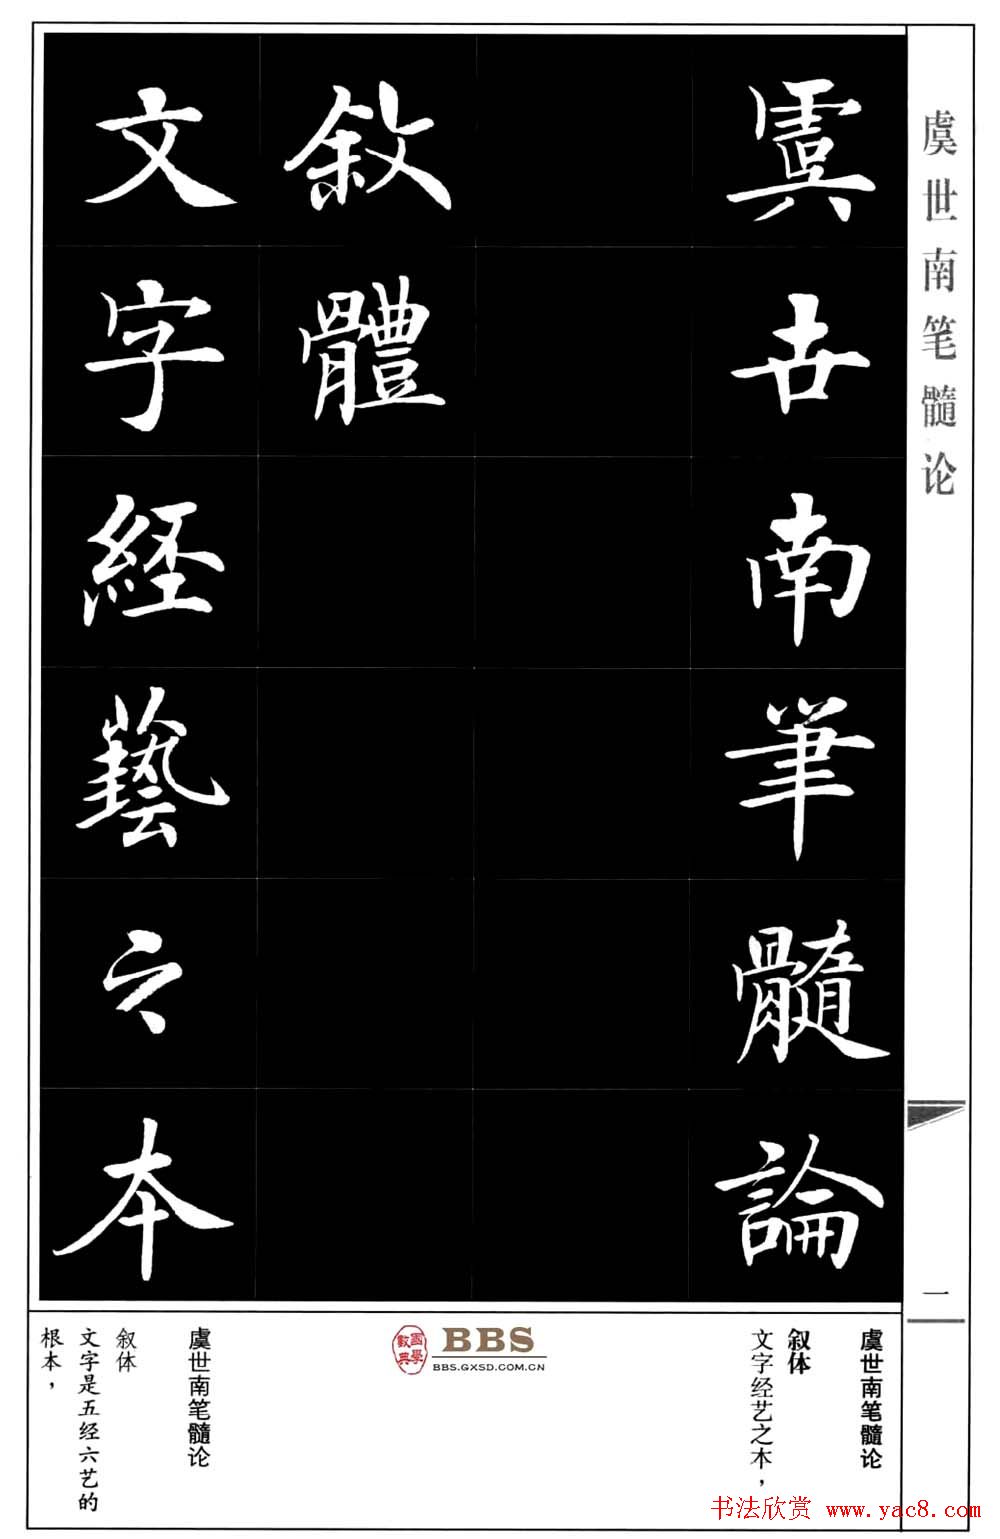 虞世南笔髓论
一
虞世南筆髓論
敘體
文字經藝之本
虞世南笔髓论
叙体
文字经艺之本，
國學數典
BBS
BBS.GXSD.COM.CN
虞世南笔髓论
叙体
文字是五经六艺的
根本，
书法欣赏 www.yac8.com